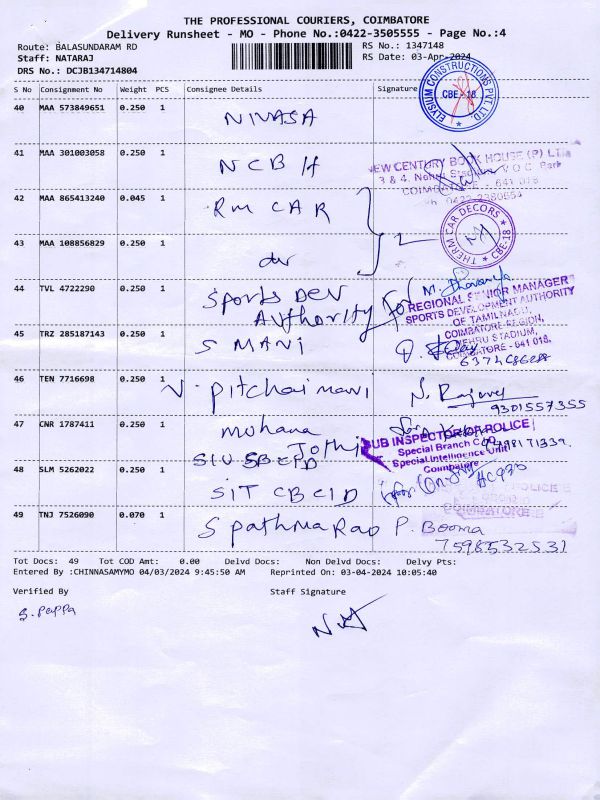 THE PROFESSIONAL COURIERS, COIMBATORE
Delivery Runsheet - MO - Phone No.:0422-3505555 - Page No.:4
Route: BALASUNDARAM RD
RS No.: 1347148
Staff: NATARAJ
RS Date: 03-Apr-2024
DRS No.: DCJB134714804
S No Consignment No Weight PCS Consignee Details Signature
ELYSIUM CONSTRUCTIONS PVT. LTD.
CBE-18
40 MAA 573849651 0.250 1 NIVASA
41 MAA 301003058 0.250 1 NCB H
NEW CENTURY BOOK HOUSE (P) LTD
3 & 4, Nehru Stadium V O C Park
COIMBATORE - 641 018
42 MAA 865413240 0.045 1 RM CAR
THERM CAR DECORS
CBE-18
43 MAA 108856829 0.250 1 do 2
44 TVL 4722290 0.250 1 Sports Dev
Authority For
REGIONAL SENIOR MANAGER
SPORTS DEVELOPMENT AUTHORITY
OF TAMILNADU,
COIMBATORE REGION,
NEHRU STADIUM,
COIMBATORE - 641 018.
45 TRZ 285187143 0.250 1 S MANI
46 TEN 7716698 0.250 1 V. Pitchaimani
9301557355
47 CNR 1787411 0.250 1 Mohana
Jothi
SUB INSPECTOR OF POLICE
Special Branch CID
Special Intelligence Unit
Coimbatore
SIU SBCID
48 SLM 5262022 0.250 1 SIT CBCID
COIMBATORE
49 TNJ 7526090 0.070 1 S Pathma Rao P. Booma
7598532531
Tot Docs: 49 Tot COD Amt: 0.00 Delvd Docs: Non Delvd Docs: Delvy Pts:
Entered By :CHINNASAMYMO 04/03/2024 9:45:50 AM Reprinted On: 03-04-2024 10:05:40
Verified By Staff Signature
S. Pappa